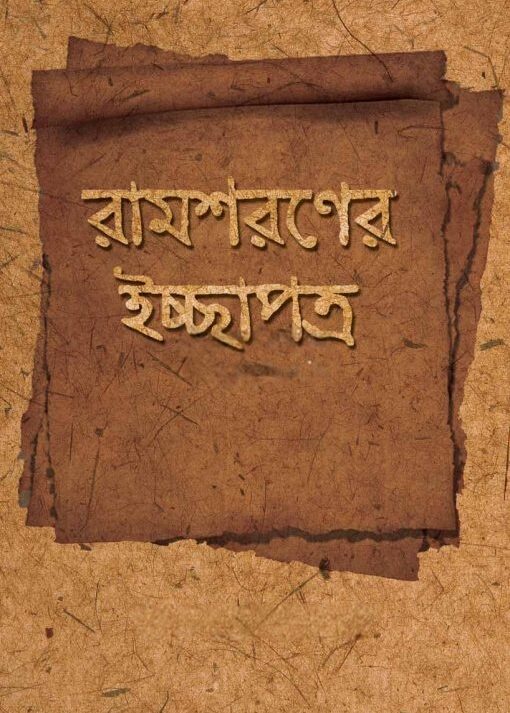 রামশরণের
ইচ্ছাপত্র